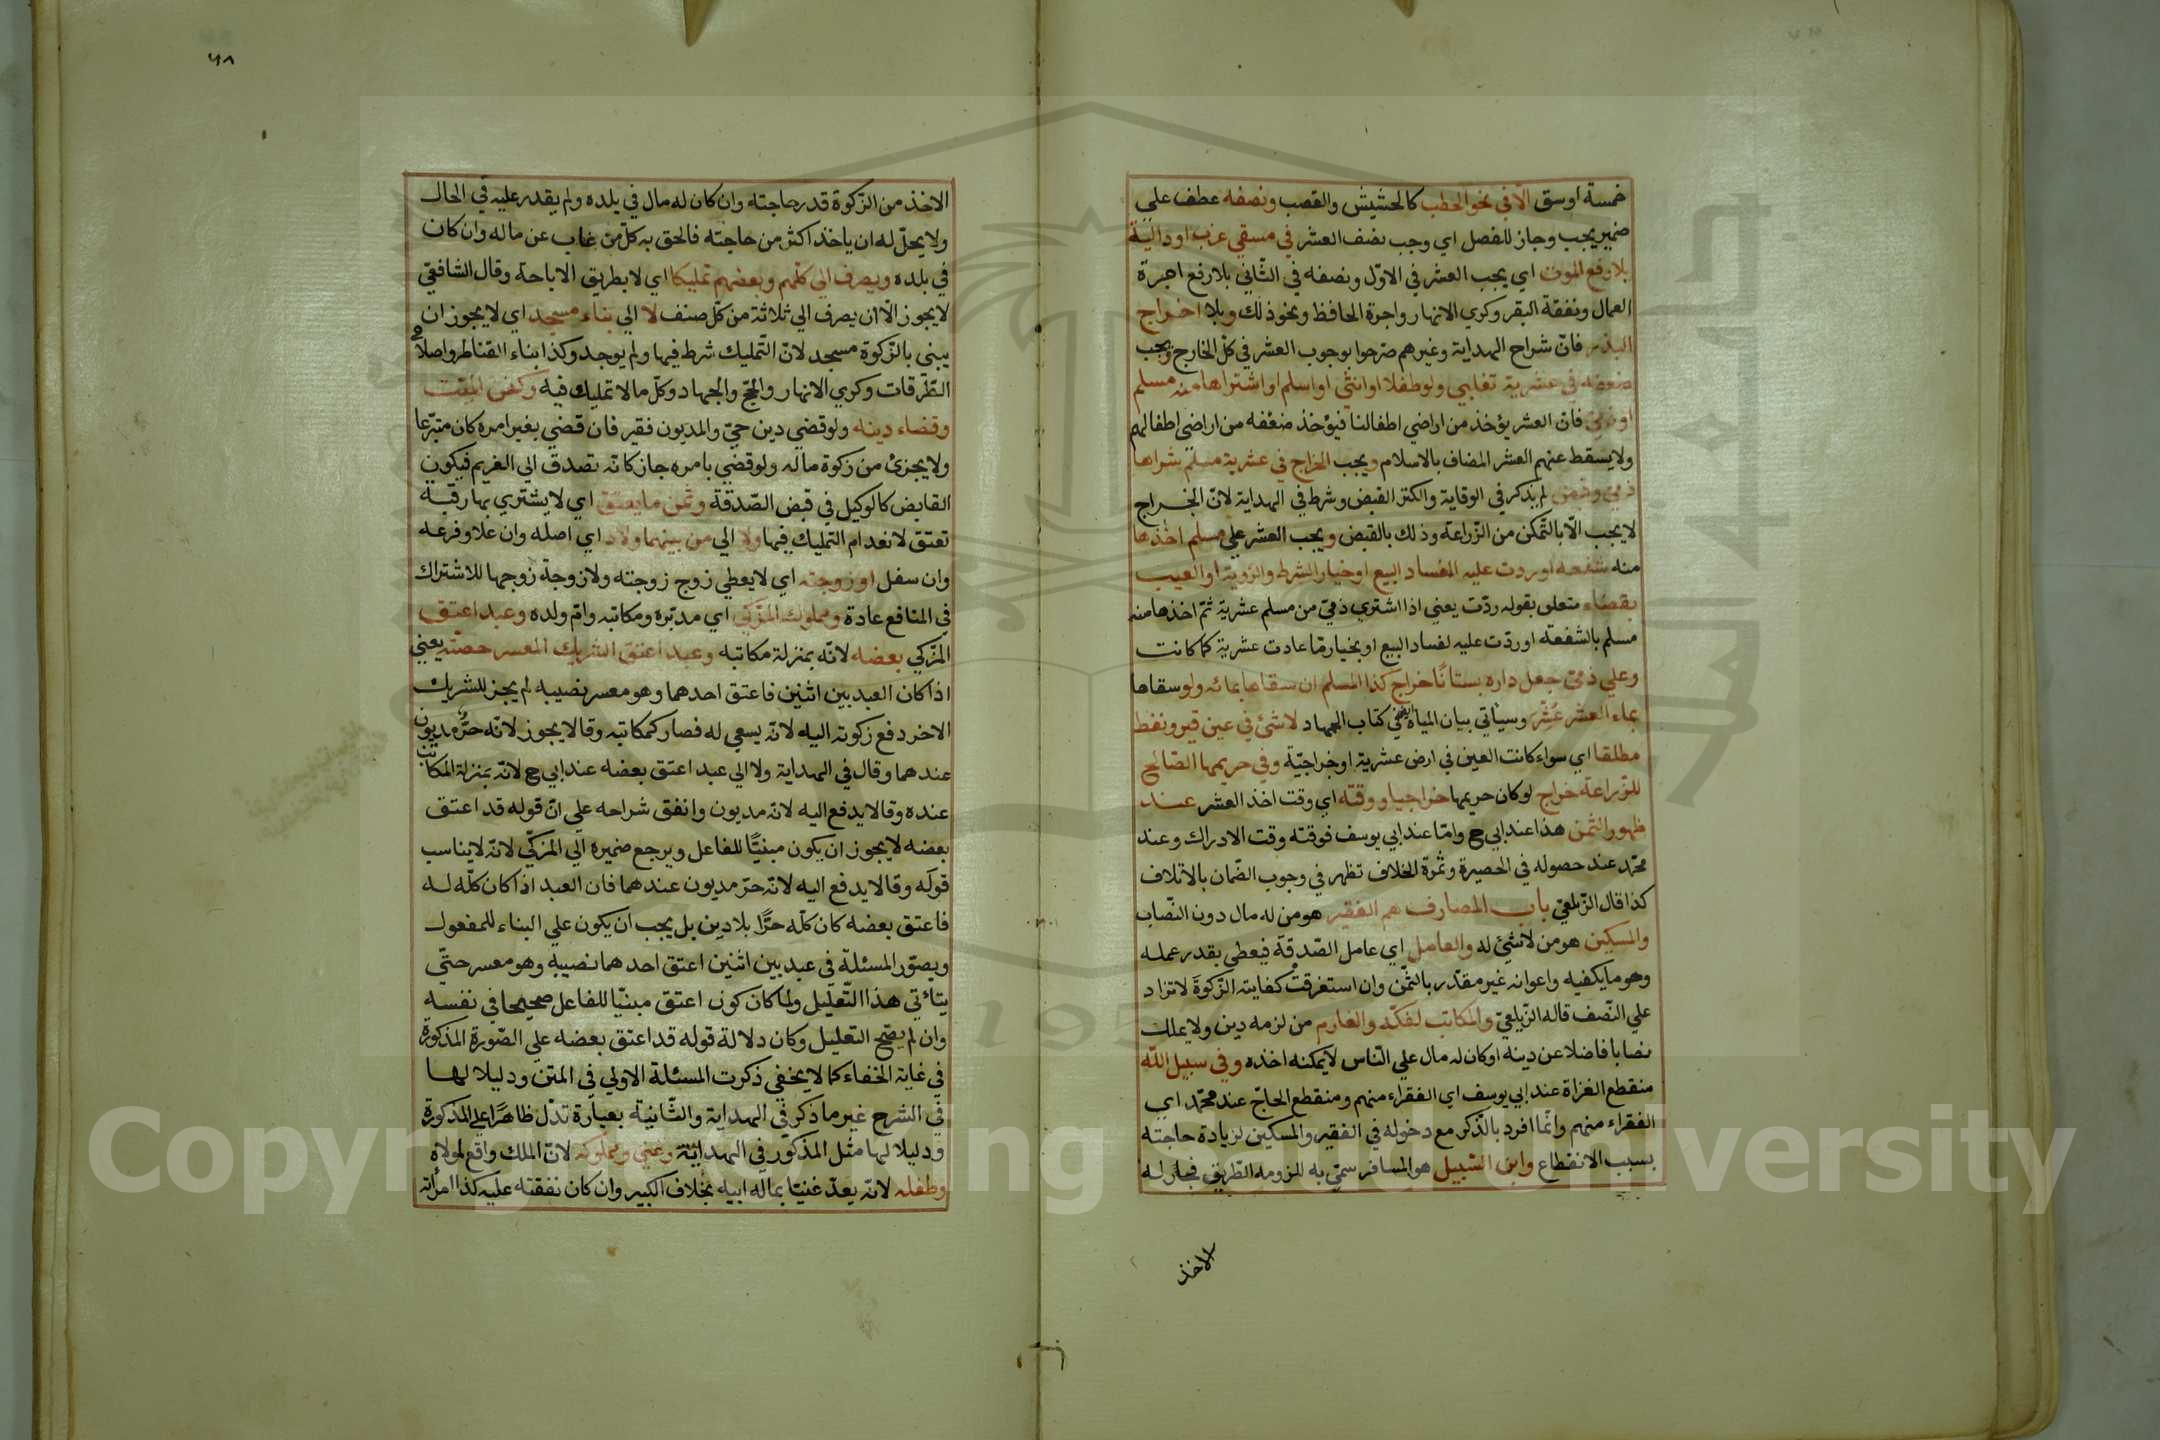 خمسة اوسق الا في نحو الحطب كالحشيش والقصب ونصفه عطف علي
ضمير يجب وجاز للفصل اي وجب نصف العشر في مسقي غرب او دالية
بلا رفع المون اي يجب العشر في الاوّل ونصفه في الثّاني بلا رفع اجرة
العمال ونفقة البقر وكري الانهار واجرة الحافظ ونحو ذلك وبلا اخراج
البذر فانّ شراح الهداية وغيرهم صرّحوا بوجوب العشر في كلّ الخارج ويجب
ضعفه في عشرية تغلبي ولو طفلا او انثي او اسلم او اشتراها منه مسلم
او ذمي فانّ العشر يؤخذ من اراضي اطفالنا فيؤخذ ضعفه من اراضي اطفالهم
ولا يسقط عنهم العشر المضاف بالاسلام ويجب الخراج في عشرية مسلم شراها
ذمي وقبض لم يذكر في الوقاية والكنز القبض وشرط في الهداية لانّ الخراج
لا يجب الّا بالتّمكن من الزّراعة وذلك بالقبض ويجب العشر علي مسلم اخذها
منه شفعة او ردت عليه لفساد البيع او خيار الشرط والرّوية او العيب
بقضاء متعلق بقوله ردّت يعني اذا اشتري ذميّ من مسلم عشرية ثمّ اخذها منه
مسلم بالشفعة او ردّت عليه لفساد البيع او بخيار ما عادت عشرية كما كانت
وعلي ذميّ جعل داره بستانًا خراج كذا المسلم ان سقاها بمائه ولو سقاها
بماء العشر عُشْرٌ وسيأتي بيان المياه في كتاب الجهاد لا شئ في عين قير ونفط
مطلقا اي سواء كانت العين في ارض عشرية او خراجيّة وفي حريمها الصّالح
للزّراعة خراج لو كان حريمها خراجيا ووقته اي وقت اخذ العشر عند
ظهور الثمن هذا عند ابي ح وامّا عند ابي يوسف فوقته وقت الادراك وعند
محمّد عند حصوله في الحصيرة وثمرة الخلاف تظهر في وجوب الضّمان بالاتلاف
كذا قال الزّيلعيّ باب المصارف هم الفقير هو من له مال دون النّصاب
والمسكين هو من لا شئ له والعامل اي عامل الصّدقة فيعطي بقدر عمله
وهو ما يكفيه واعوانه غير مقدّر بالثّمن وان استغرقت كفايته الزّكوة لا تزاد
علي النّصف قاله الزّيلعيّ والمكاتب لفكّه والغارم من لزمه دين ولا يملك
نصابا فاضلا عن دينه او كان له مال علي النّاس لا يمكنه اخذه وفي سبيل اللّه
منقطع الغزاة عند ابي يوسف اي الفقراء منهم ومنقطع الحاجّ عند محمّد اي
الفقراء منهم وانّما افرد بالذّكر مع دخوله في الفقير والمسكين لزيادة حاجته
بسبب الانقطاع وابن السّبيل هو المسافر سمّي به للزومه الطّريق فجاز له
الاخذ
٩٨
الاخذ من الزّكوة قدر حاجته وان كان له مال في بلده ولم يقدر عليه في الحال
ولا يحلّ له ان ياخذ اكثر من حاجته فالحق به كلّ من غاب عن ماله وان كان
في بلده ويصرف الي كلّهم وبعضهم تمليكا اي لا بطريق الاباحة وقال الشافعيّ
لا يجوز الّا ان يصرف الي ثلاثة من كلّ صنف لا الي بناء مسجد اي لا يجوز ان
يبني بالزّكوة مسجد لانّ التّمليك شرط فيها ولم يوجد وكذا بناء القناطر واصلاح
الطّرقات وكري الانهار والحجّ والجهاد وكلّ ما لا تمليك فيه وكفن الميّت
وقضاء دينه ولو قضي دين حيّ والمديون فقير فان قضي بغير امره كان متبرّعا
ولا يجزئ من زكوة ماله ولو قضي بامره جاز كانّه تصدق الي الغريم فيكون
القابض كالوكيل في قبض الصّدقة وثمن ما يعتق اي لا يشتري بها رقبة
تعتق لانعدام التمليك فيها ولا الي من بينهما ولاد اي اصله وان علا وفرعه
وان سفل او زوجته اي لا يعطي زوج زوجته ولا زوجة زوجها للاشتراك
في المنافع عادة ومملوك المزكي اي مدبّره ومكاتبه وامّ ولده وعبد اعتق
المزكي بعضه لانّه بمنزلة مكاتبه وعبد اعتق الشريك المعسر حصّته يعني
اذا كان العبد بين اثنين فاعتق احدهما وهو معسر نصيبه لم يجز للشريك
الاخر دفع زكوته اليه لانّه يسعي له فصار كمكاتبه وقالا يجوز لانّه حرّ مديون
عندهما وقال في الهداية ولا الي عبد اعتق بعضه عند ابي ح لانّه بمنزلة المكاتب
عنده وقالا يدفع اليه لانّه مديون واتفق شراحه علي انّ قوله قد اعتق
بعضه لا يجوز ان يكون مبنيًّا للفاعل ويرجع ضميره الي المزكّي لانّه لا يناسب
قوله وقالا يدفع اليه لانّه حرّ مديون عندهما فان العبد اذا كان كلّه له
فاعتق بعضه كان كلّه حرًّا بلا دين بل يجب ان يكون علي البناء للمفعول
ويصوّر المسئلة في عبد بين اثنين اعتق احدهما نصيبه وهو معسر حتّي
يتأتي هذا التّعليل ولما كان كون اعتق مبنيّا للفاعل صحيحا في نفسه
وان لم يصحّ التعليل وكان دلالة قوله قد اعتق بعضه علي الصّورة المذكورة
في غاية الخفاء كما لا يخفي ذكرت المسئلة الاولي في المتن ودليلا لها
في الشرح غير ما ذكر في الهداية والثّانية بعبارة تدلّ ظاهرًا علي المذكورة
ودليلا لها مثل المذكور في الهداية وغني ومملوكه لانّ الملك واقع لمولاه
وطفله لانّه يعدّ غنيّا بمال ابيه بخلاف الكبير وان كان نفقته عليه كذا امرأته
Copyright © King Saud University
1957